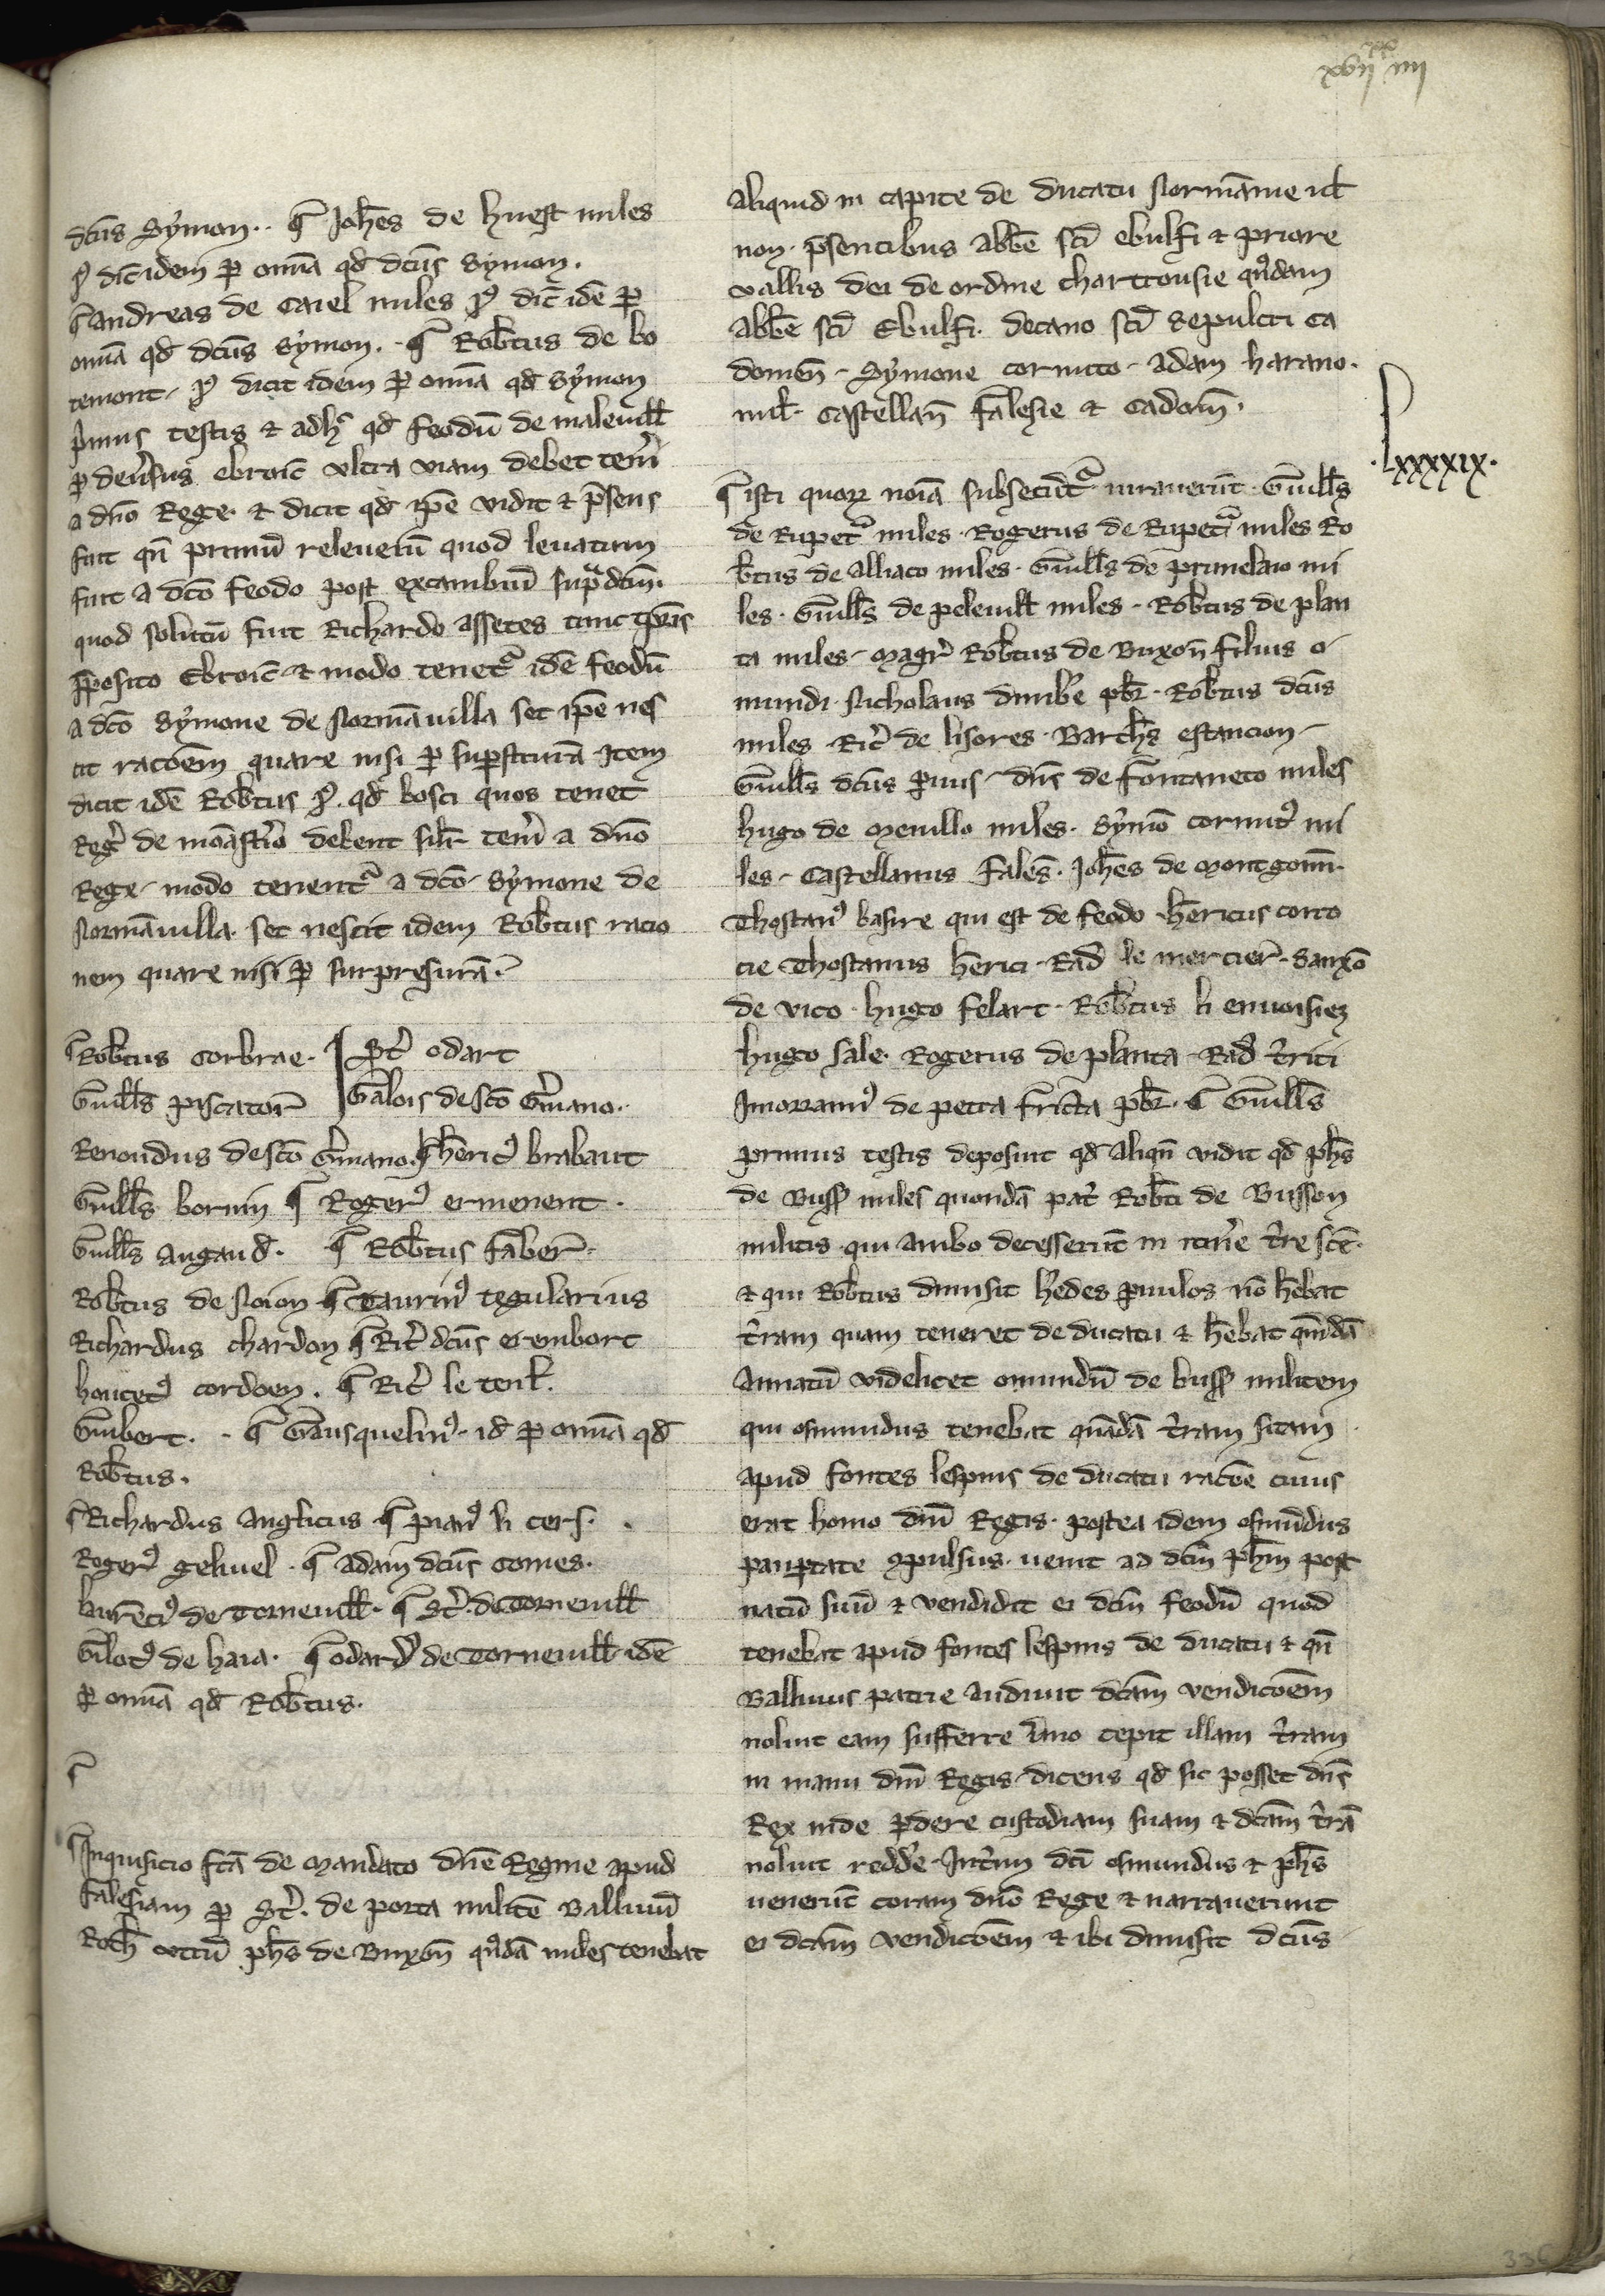 xvij iiij
xx
dcũs Sẏmon. ¶ Joh̃es de huest miles
ꝯ̉ dic̃ idem ꝑ om̃ia qd̃ dcũs Sẏmon.
¶ Andreas de Caiel miles dic̃ idẽ ꝑ
om̃ia qd̃ dcũs Sẏmon. ¶ Rob̃tus de bo
temont dicit idem ꝑ om̃ia qd̃ Sẏmon
p̾mus testis ⁊ adhᷓ qd̃ feodũ de maleuill̃
ebroic̃ vltra viam debet teñi
a dño Rege ⁊ dicit qd̃ ip̃e vidit ⁊ p̃sens
fuit qñ primũ releueiũ quod leuatum
fuit a dc̃o feodo post excambiũ sup̃dcm̃
quod solutũ fuit Richardo assetes tunc tp̃ris
p̃posito Ebroic̃ ⁊ modo tenetᷓ idẽ feodũ
a dc̃o Sẏmone de Normãuilla set ip̃e nes
cit rac̃oem quare nisi ꝑ Item
dicit idẽ Rob̃tus qd̃ bosci quos tenet
Rog̾ de monãst̾io debent sil̃r teñi a dño
Rege modo tenentᷓ a dc̃o Sẏmone de
Normãuilla set nescit idem Rob̃tus racio
nem quare nisi ꝑ surpresurã.
¶ Rob̃tus corbrae. St̾ odart
Guill̃s piscator̃ Galois de sc̃o G̾mano.
Renoudus de sc̃o G̾mano. ¶ henricꝰ brabant
Guill̃s bornin ¶ Rogerꝰ ermenent.
Guill̃s Angaud̃. ¶ Rob̃tus faber
Rob̃tus de Noion ¶ Taurinꝰ tegularius
Richardus chardon ¶ Ric̾ dcũs erembort
houcetꝰ cordoen. ¶ Ric̾ le
Guibert. ¶ Gausquelinꝰ id̃ ꝑ om̃ia qd̃
Rob̃tus.
¶ Richardus Anglicus ¶ li cers.
Rogerꝰ gehuel. ¶ Adam dcũs Comes.
laurẽciꝰ de Torneuill̃. ¶ St̾. de Torneuill̃
Gilotꝰ de haia. ¶ odardꝰ de Torneuill̃ idẽ
ꝑ om̃ia qd̃ Rob̃tus.
¶
¶ Inquisicio fc̃a de mandato dñe Regine apud
falesiam ꝑ St̾. de porta militẽ Balliuũ
Roth̃ vtrũ ph̃s de Buxoñ qⁿdã miles tenebat
Aliquid in capite de ducatu Normãnie id̃
non p̃sentibus abb̃e sc̃i ebulfi ⁊ priore
vallis dei de ordine chartrousie qⁿdam
abb̃e sc̃i Ebulfi. decano sc̃i Sepulcri Ca
domeñ. Sẏmone cornuto. Adam harano.
mil̃. castellañ falesie ⁊ Cadom̃.
.Lxxxxix.
¶ isti quoꝝ noĩa subsecũtᷓ iurauerũt. Guill̃s
de Rupetᷓ miles. Rogerus de Rupetᷓ miles Ro
b̃tus de Alliaco miles. Guill̃s de prunelaio mi
les. Guill̃s de peleuill̃ miles. Rob̃tus de plan
ta miles. Magr̃ Rob̃tus de Buxoñ filius o
mundi. Nicholaus pb̃r. Rob̃tus dcũs
miles. Ric̾ de lisores. Barth̃s estancion.
Guill̃s dcũs ꝑuus. dñs de fontaneto miles
hugo de Menillo miles. Sẏmõ cornutꝰ mi
les. Castellanus faleñ. Joh̃es de Montgom̃.
Thostanꝰ basire qui est de feodo. henricus corto
cie Thostanus henrici. Rad̃ le mercier. Sanxõ
de vico. hugo felart. Rob̃tus li enuoisiez
hugo sale. Rogerus de planta. Rad̃ t̾rici
Jmorranꝰ de petra fricta pb̃r. ¶ Guill̃s
primus testis deposuit qd̃ aliqñ vidit qd̃ ph̃s
de Buss̃ miles quondã pat̾ Rob̃ti de Busson
militis qui ambo decesserũt in itiñe t̾re sc̃e.
⁊ qui Rob̃tus dimisit h̾edes ꝑuulos nõ hẽbat
t̾ram quam teneret de ducatu ⁊ hẽbat quẽdã
Annatũ videlicet omundũ de buss̃ militem
qui osmundus tenebat quãdã t̾ram sitam
apud fontes lespins de ducatu rac̃oe cuius
erat homo dñi Regis. postea idem osmũdus
pauꝑtate ꝯpulsus venit ad dcm̃ ph̃m post
natũ suũ ⁊ vendidit ei dcm̃ feodũ quod
tenebat apud fontes lespins de ducatu ⁊ qñ
Balliuus patrie audiuit dcãm vendic̃oem
noluit eam sufferre ỉmo cepit illam t̾ram
in manu dñi Regis dicens qd̃ sic posset dñs
Rex inde ꝑdere custodiam suam ⁊ dcãm t̾rã
noluit redd̾e. Int̾im dc̃i osmundus ⁊ ph̃s
venerũt coram dño Rege ⁊ narrauerunt
ei dcãm vendic̃oem ⁊ ibi dimisit dcũs